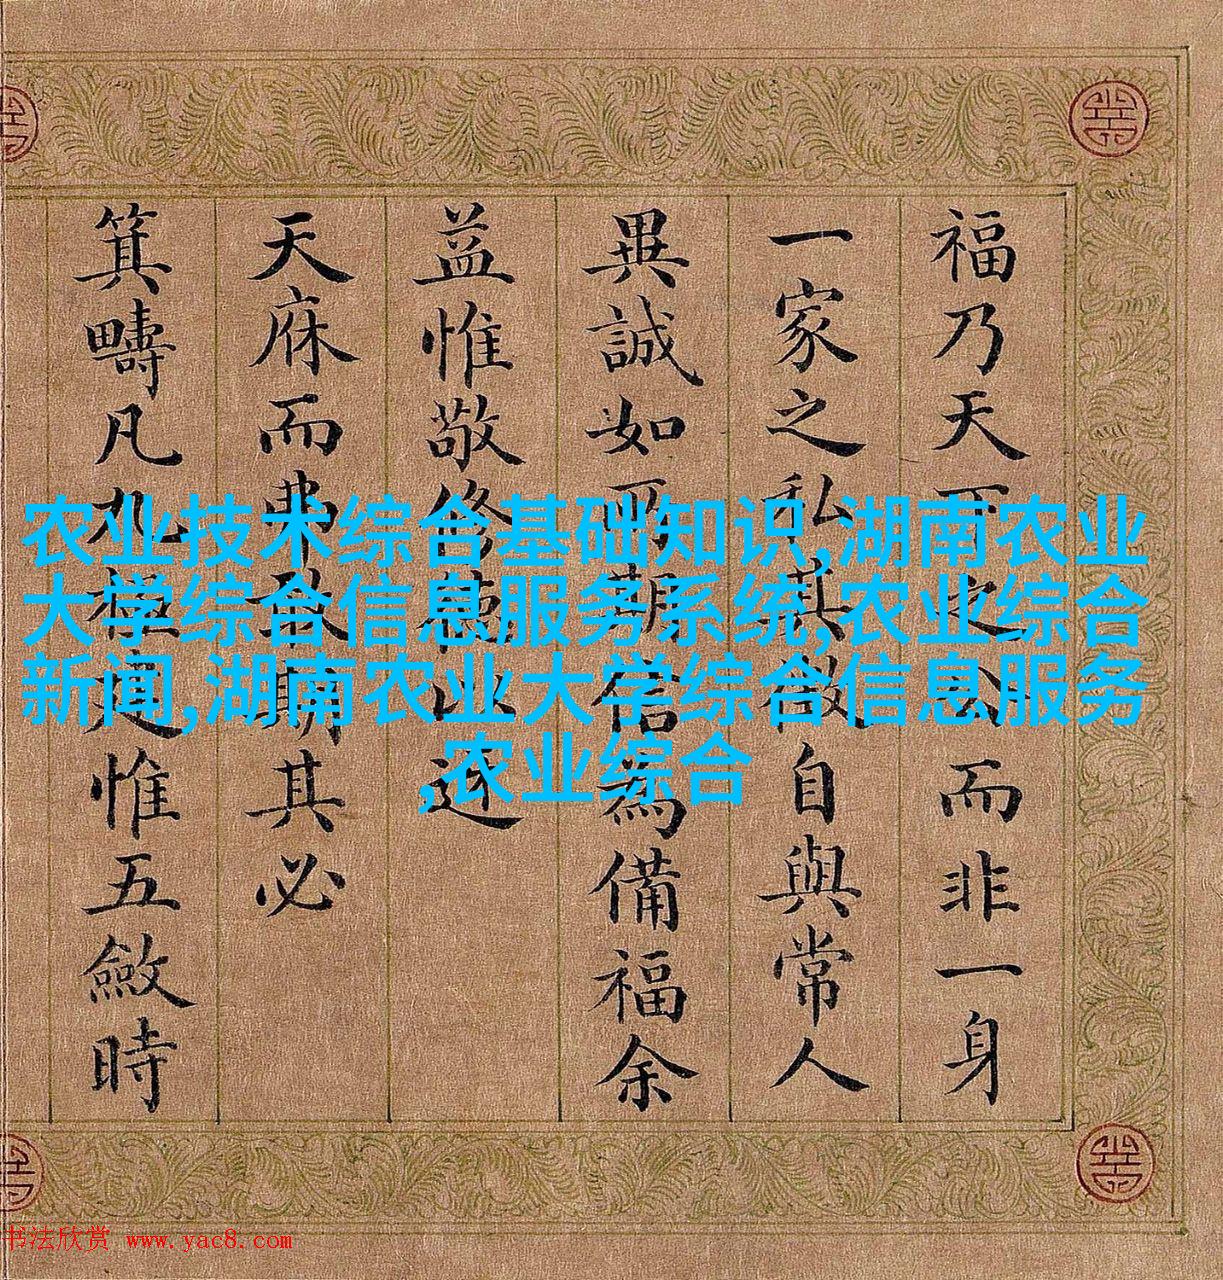 福乃天下之公而非一身
一家之私其自與常人
異誠如可期信為備福余
益惟敬修德以迓
天庥而弗敢期其必
箕疇凡九極建惟五斂時
农业技术综合基础知识,湖南农业
大学综合信息服务系统,农业综合
新闻,湖南农业大学综合信息服务
,农业综合
书法欣赏 www.yac8.com